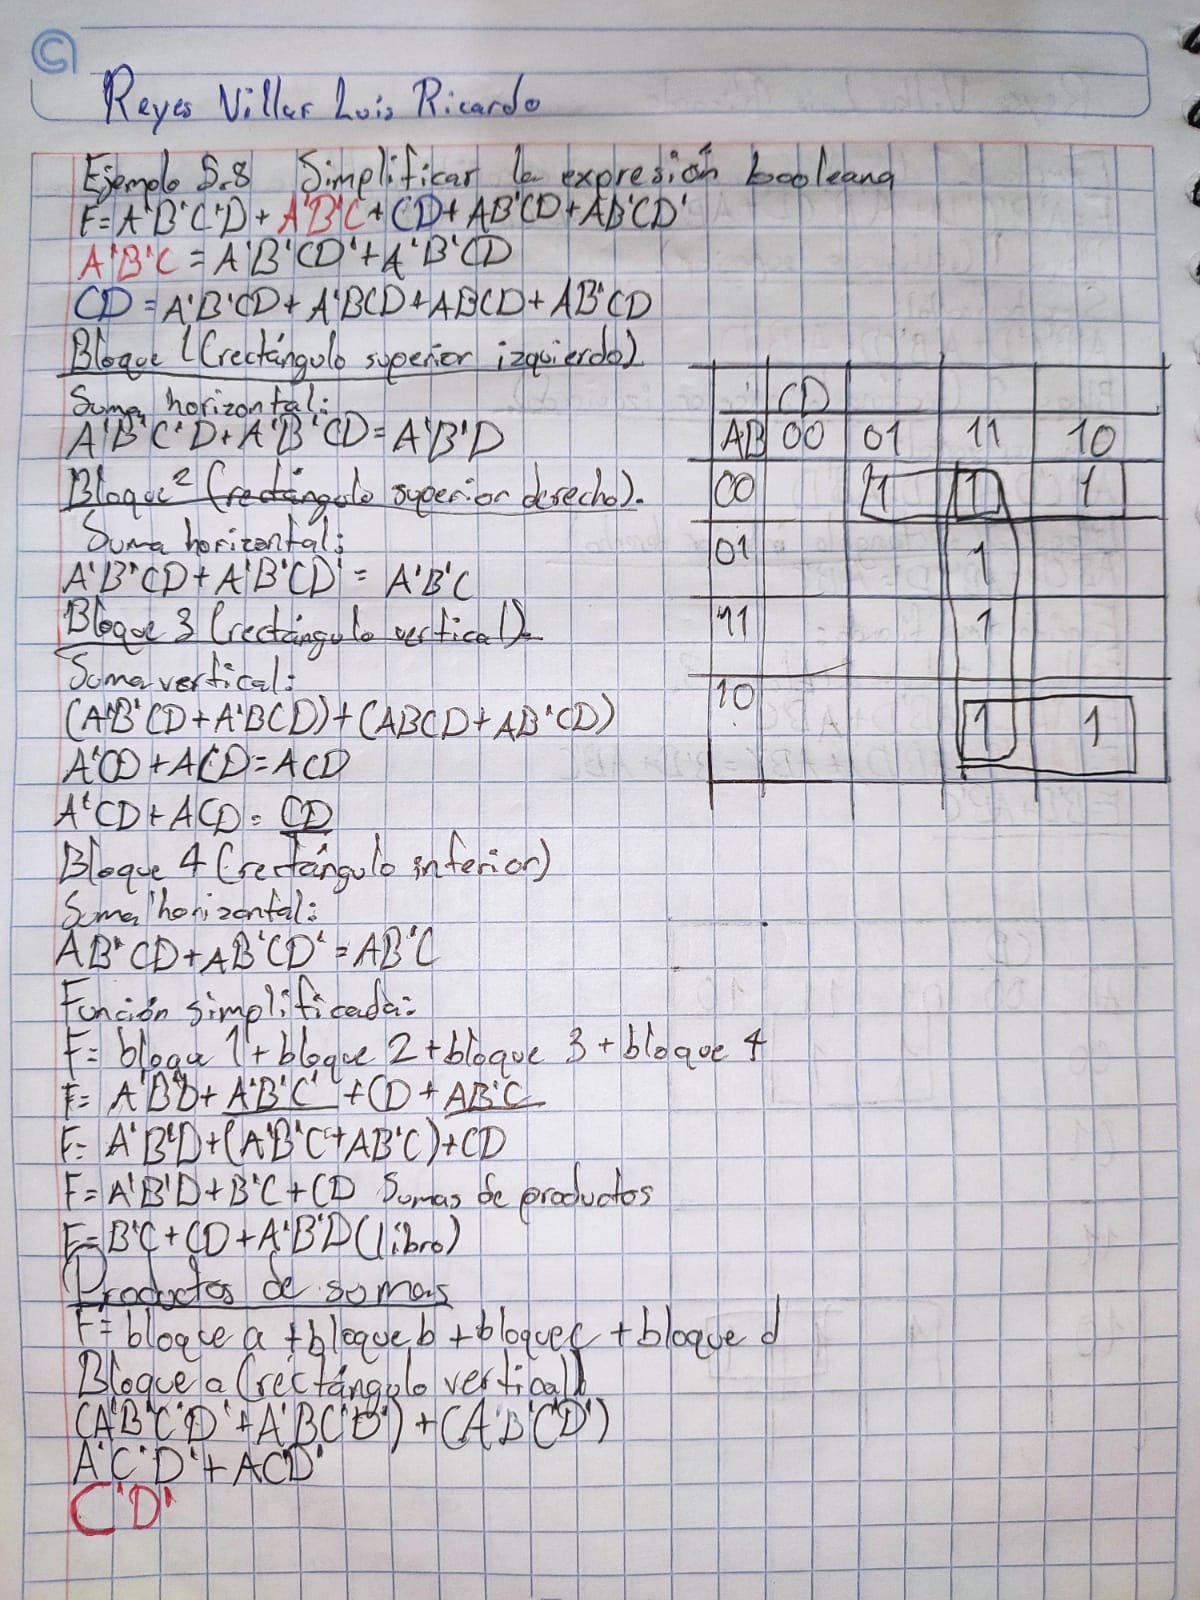 Reyes Villar Luis Ricardo
Ejemplo 5.8 Simplificar la expresión booleana
F=A'B'C'D+A'B'C+CD+AB'CD+AB'CD'
A'B'C=A'B'CD'+A'B'CD
CD=A'B'CD+A'BCD+ABCD+AB'CD
Bloque 1 (rectángulo superior izquierdo)
Suma horizontal:
A'B'C'D+A'B'CD=A'B'D
Bloque 2 (rectángulo superior derecho).
Suma horizontal:
A'B'CD+A'B'CD'=A'B'C
Bloque 3 (rectángulo vertical).
Suma vertical:
(A'B'CD+A'BCD)+(ABCD+AB'CD)
A'CD+ACD=ACD
A'CD+ACD=CD
Bloque 4 (rectángulo inferior)
Suma horizontal:
AB'CD+AB'CD'=AB'C
Función simplificada:
F= bloqu 1+bloque 2+bloque 3+bloque 4
F= A'B'D+A'B'C'+CD+AB'C
F= A'B'D+(A'B'C+AB'C)+CD
F=A'B'D+B'C+CD Sumas de productos
F=B'C+CD+A'B'D(libro)
Productos de somas
F=bloque a +bloque b +bloque c +bloque d
Bloque a (rectángulo vertical)
(A'B'C'D'+A'BC'D')+(A'B'C'D')
A'C'D'+ACD'
C'D'
CD
AB 00 01 11 10
00 1 1 1
01 1
11 1
10 1 1